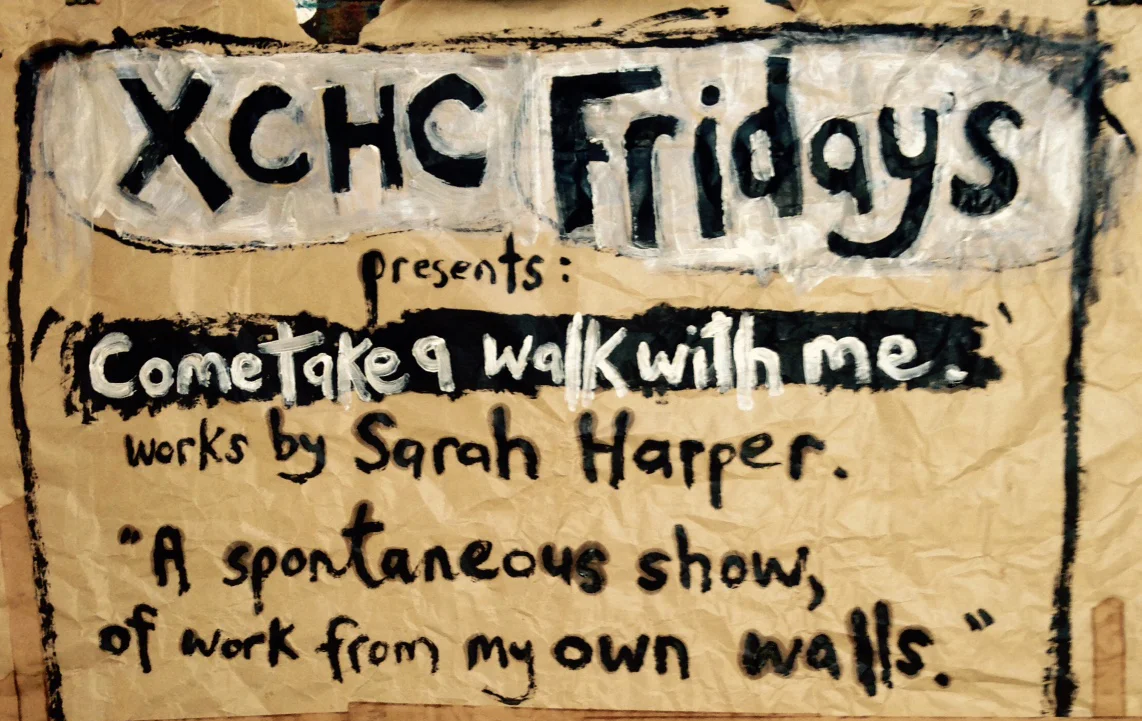 XCHC Fridays
presents:
'Come take a walk with me.'
works by Sarah Harper.
"A spontaneous show,
of work from my own walls."